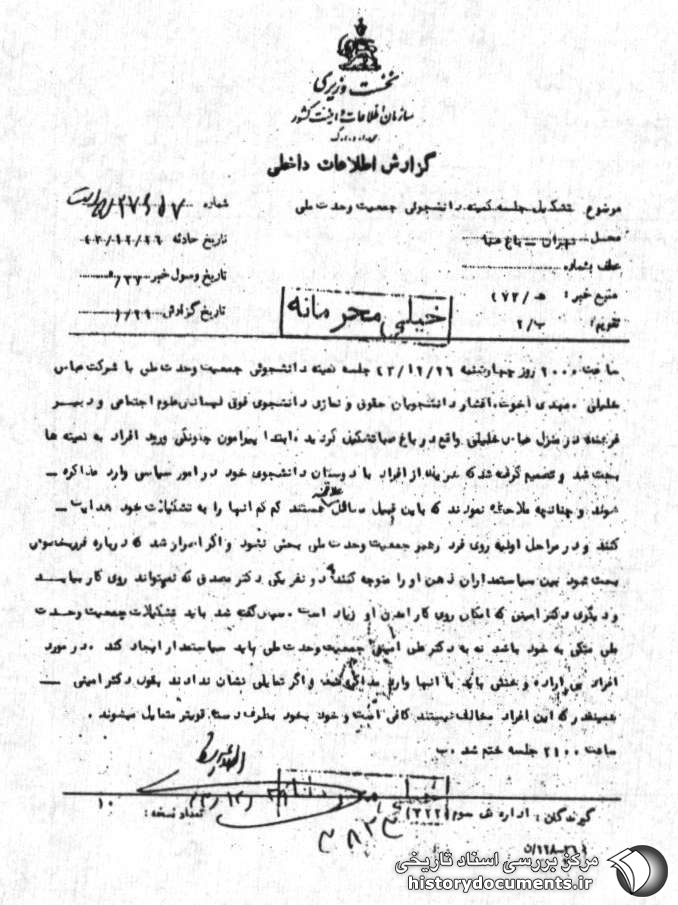 نخست وزیری
سازمان اطلاعات و امنیت کشور
س.ا.و.ا.ک
گزارش اطلاعات داخلی
موضوع تشکیل جلسه کمیته دانشجوئی جمعیت وحدت ملی
شماره
محل تهران – باغ صبا
تاریخ حادثه ۴۳/۱۲/۲۶
عطف بشماره
تاریخ وصول خبر
منبع خبر: هـ/۴۷۲
تاریخ گزارش
تقویم: ب/۲
خیلی محرمانه
ساعت ۲۰۰۰ روز چهارشنبه ۴۳/۱۲/۲۶ جلسه کمیته دانشجوئی جمعیت وحدت ملی با شرکت عباس
خلیلی، مهدی آخوت، افشار دانشجویان حقوق و نمازی دانشجوی فوق لیسانس علوم اجتماعی و دبیر
در منزل عباس خلیلی واقع در باغ صبا تشکیل گردید. ابتدا پیرامون چگونگی ورود افراد به کمیته ها
بحث شد و تصمیم گرفته شد که هر یک از افراد با دوستان دانشجوی خود در امور سیاسی وارد مذاکره –
شوند و چنانچه ملاحظه نمودند که باین قبیل مسائل علاقمند هستند کم کم آنها را به تشکیلات خود هدایت –
کنند و در مراحل اولیه روی فرد رهبر جمعیت وحدت ملی بحثی نشود و اگر اصرار شد که درباره فرد بخصوصی
بحث شود بین سیاستمداران ذهن او را متوجه کنند به دو نفر یکی دکتر مصدق که نمیتواند روی کار بیاید
و دیگری دکتر امینی که امکان روی کار آمدن او زیاد است. سپس گفته شد باید تشکیلات جمعیت وحدت
ملی متکی به خود باشد نه به دکتر علی امینی جمعیت وحدت ملی باید سیاستمدار ایجاد کند. در مورد
افراد بی اراده و خنثی باید با آنها وارد مذاکره شد و اگر تمایلی نشان ندادند بقول دکتر امینی –
همینقدر که این افراد مخالف نیستند کافی است و خود بخود بطرف دسته قویتر متمایل میشوند.
ساعت ۲۱۰۰ جلسه ختم شد. ب
گیرندگان: اداره کل سوم (۳۲۲)
تعداد نسخه: ۱۰
مرکز بررسی اسناد تاریخی
historydocuments.ir